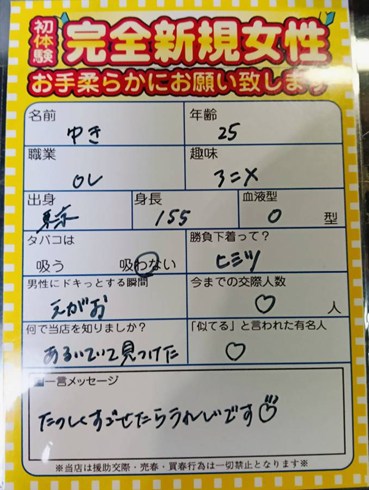 初体験 完全新規女性
お手柔らかにお願い致します
名前 ゆき 年齢 25
職業 OL 趣味 アニメ
出身 東京 身長 155 血液型 O 型
タバコは 吸う 吸わない 勝負下着って? ヒミツ
男性にドキっとする瞬間 えがお 今までの交際人数 ♡ 人
何で当店を知りましたか? あるいてて見つけた 「似てる」と言われた有名人 ♡
■一言メッセージ
たのしくすごせたらうれしいです
※当店は援助交際・売春・買春行為は一切禁止となります※